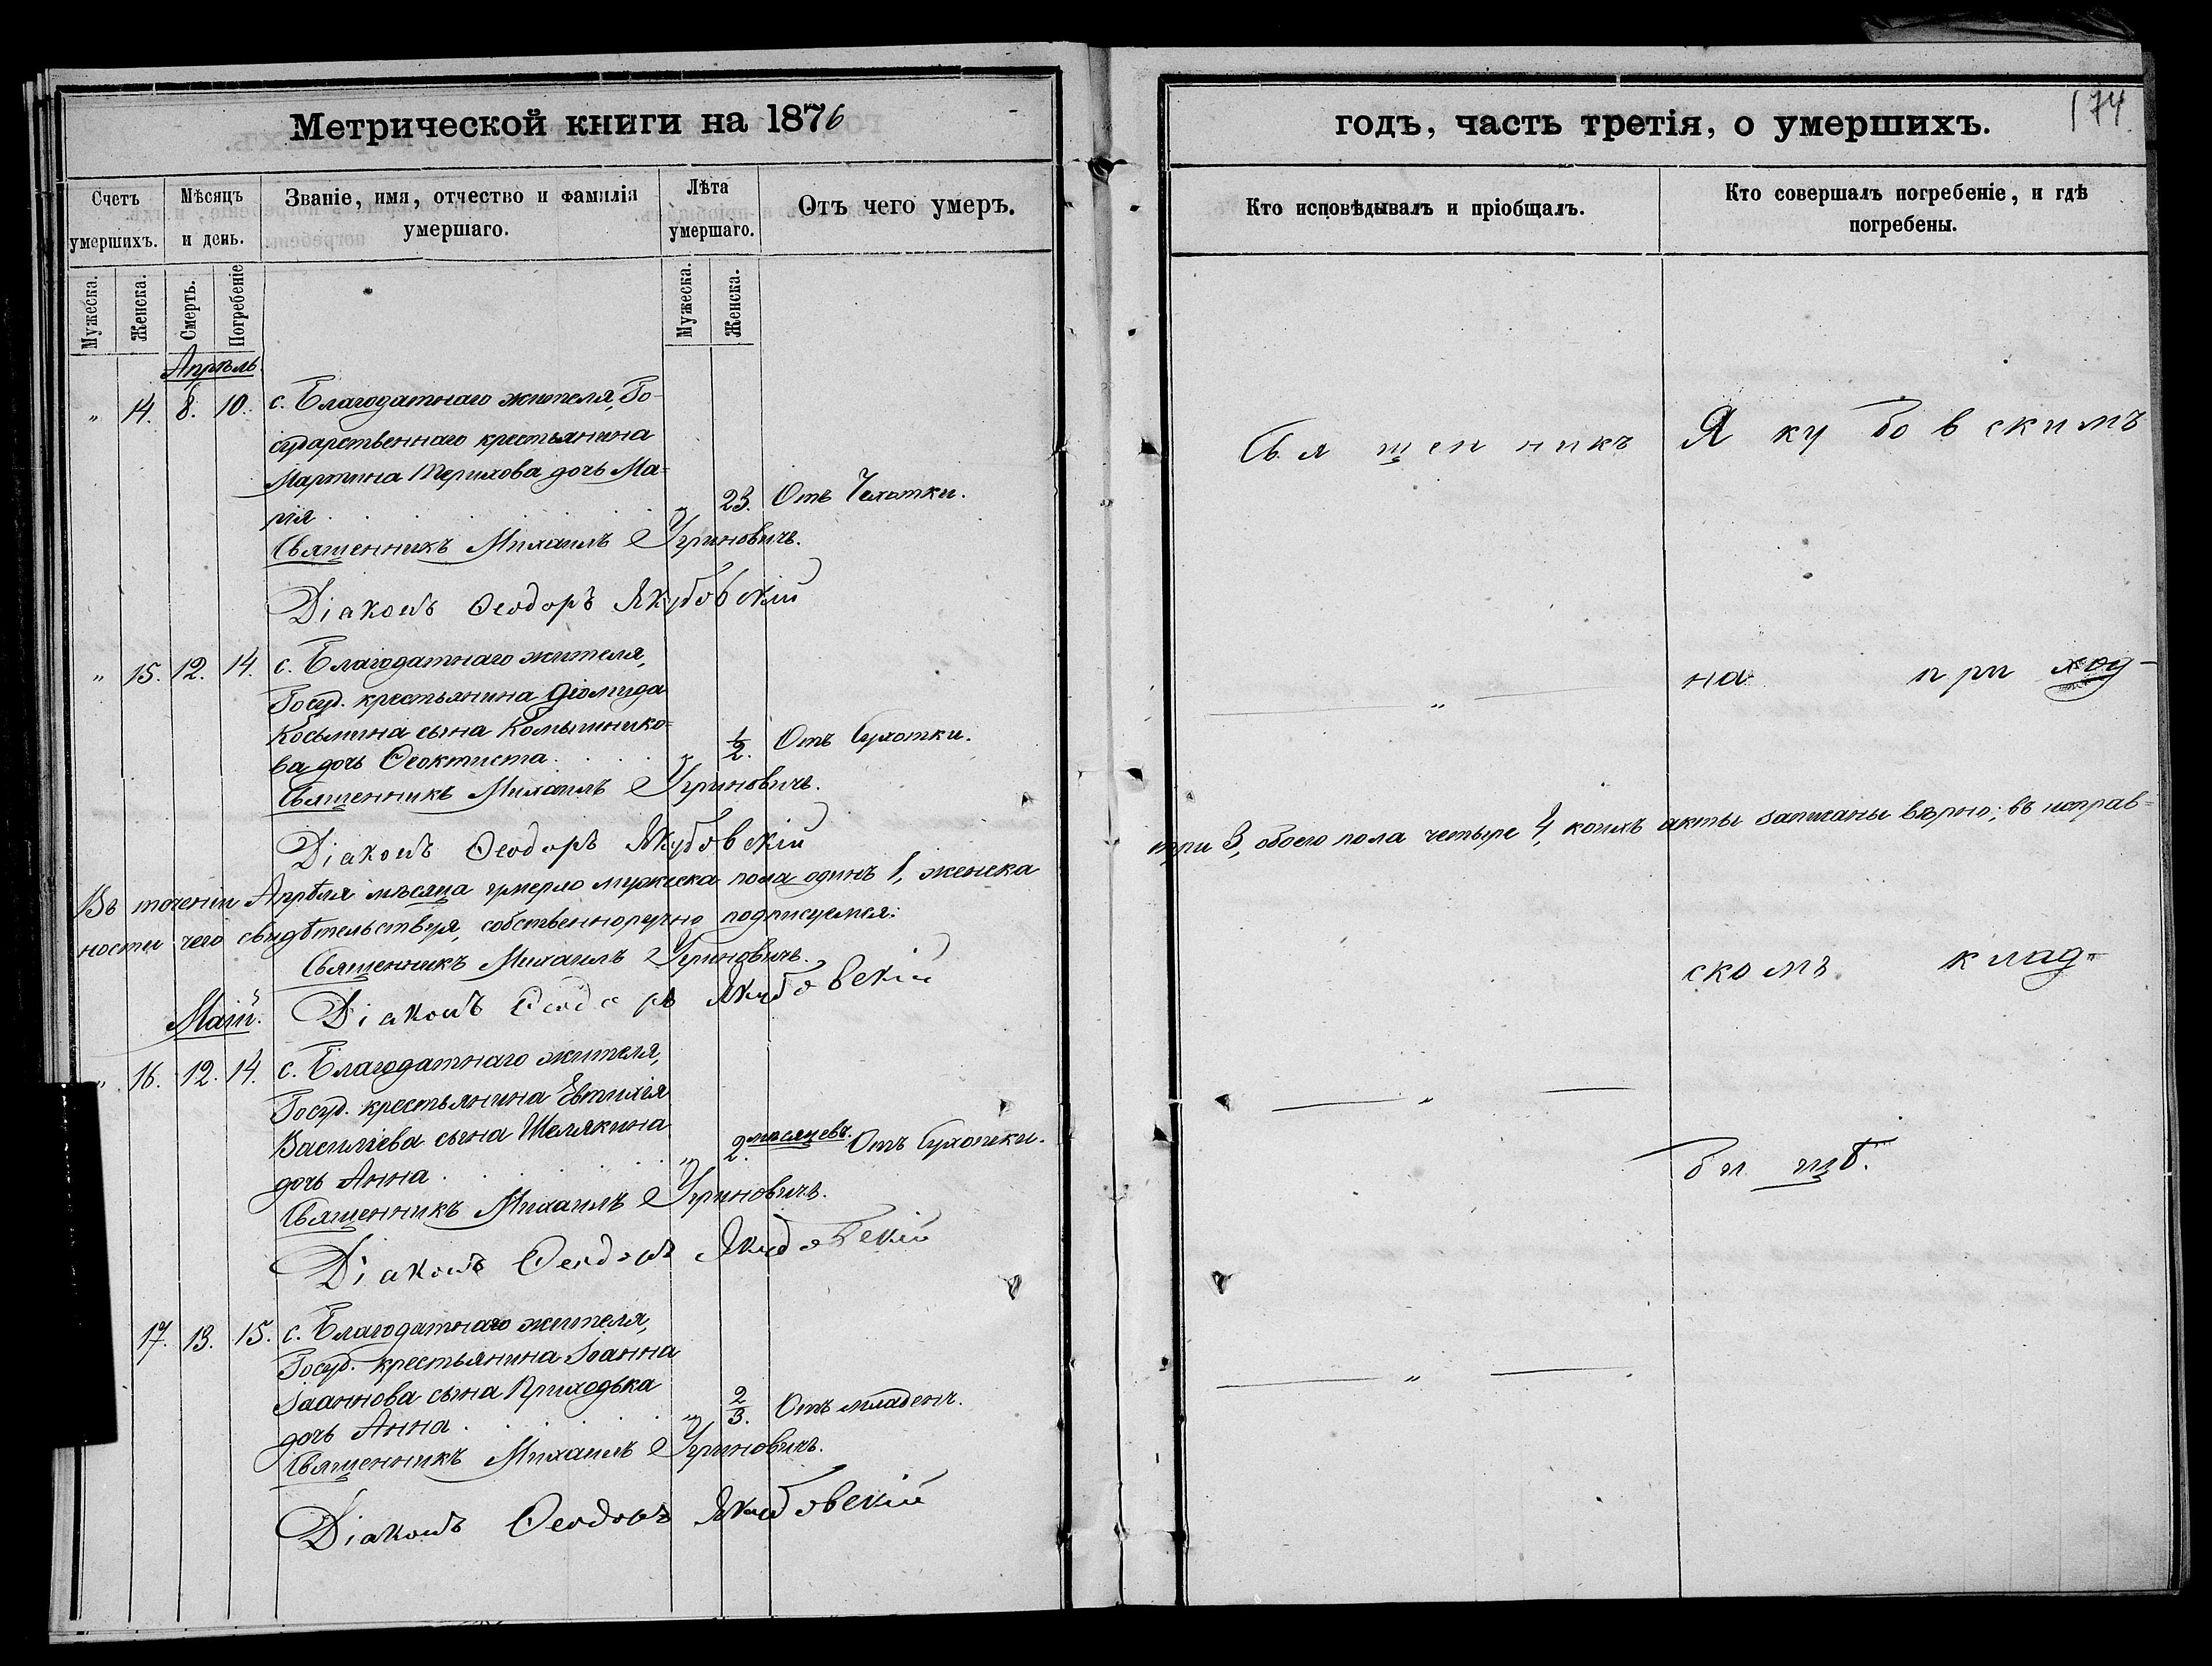 Метрической книги на 1876
Счетъ умершихъ.
Мѣсяцъ и день.
Званіе, имя, отчество и фамилія умершаго.
Лѣта умершаго.
Отъ чего умеръ.
Мужеска.
Женска.
Смерть.
Погребеніе
Мужеска.
Женска.
Апрѣль
" 14. 8. 10. с. Благодатнаго жителя, Го-
сударственнаго крестьянина
Мартина дочь Ма-
рія " 23. Отъ Чахотки.
Священникъ Михаилъ Угриновичъ.
Діаконъ Ѳеодоръ Якубовскій
" 15. 12. 14. с. Благодатнаго жителя,
Госуд. крестьянина Діомида
Косьмина сына Комышнико-
ва дочь Ѳеоктиста " 1/2. Отъ Сухотки.
Священникъ Михаилъ Угриновичъ.
Діаконъ Ѳеодоръ Якубовскій
Въ теченіи Апрѣля мѣсяца умерло мужеска пола одинъ 1, женска
ности чего свидѣтельствуя, собственноручно подписуемся:
Священникъ Михаилъ Угриновичъ.
Діаконъ Ѳеодоръ Якубовскій
Маій.
" 16. 12. 14. с. Благодатнаго жителя,
Госуд. крестьянина Евтихія
Василіева сына Шелякина
дочь Анна " 2. мѣсяцевъ. Отъ Сухотки.
Священникъ Михаилъ Угриновичъ.
Діаконъ Ѳеодоръ Якубовскій
17. 13. 15. с. Благодатнаго жителя,
Госуд. крестьянина Іоанна
Іоаннова сына Приходька
дочь Анна " 2/3. Отъ младенч.
Священникъ Михаилъ Угриновичъ.
Діаконъ Ѳеодоръ Якубовскій
годъ, часть третія, о умершихъ.
174
Кто исповѣдывалъ и пріобщалъ.
Кто совершалъ погребеніе, и гдѣ
погребены.
Священникъ Якубовскимъ
" на приход-
три 3, обоего пола четыре 4, коихъ акты записаны вѣрно; въ исправ-
скомъ клад-
"
бищѣ.
"